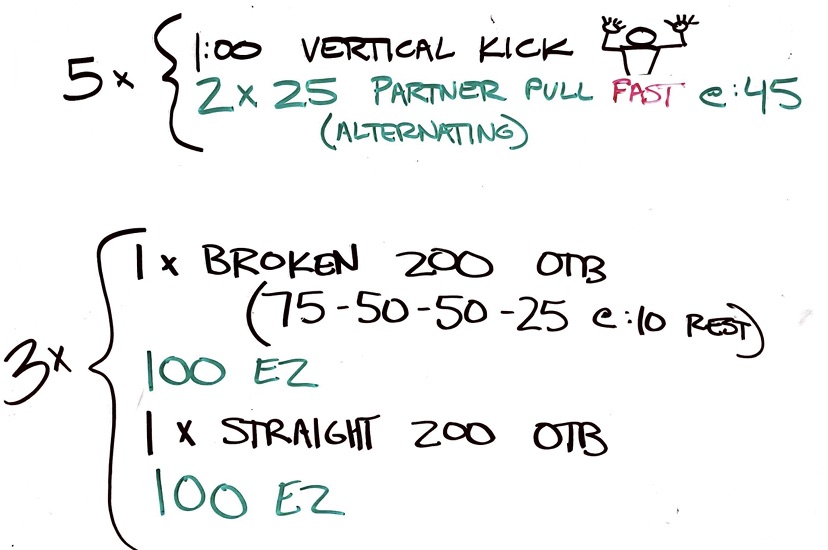 5x { 1:00 VERTICAL KICK
2 x 25 PARTNER PULL FAST @:45
(ALTERNATING)
3x { 1 x BROKEN 200 OTB
(75-50-50-25 @:10 REST)
100 EZ
1 x STRAIGHT 200 OTB
100 EZ